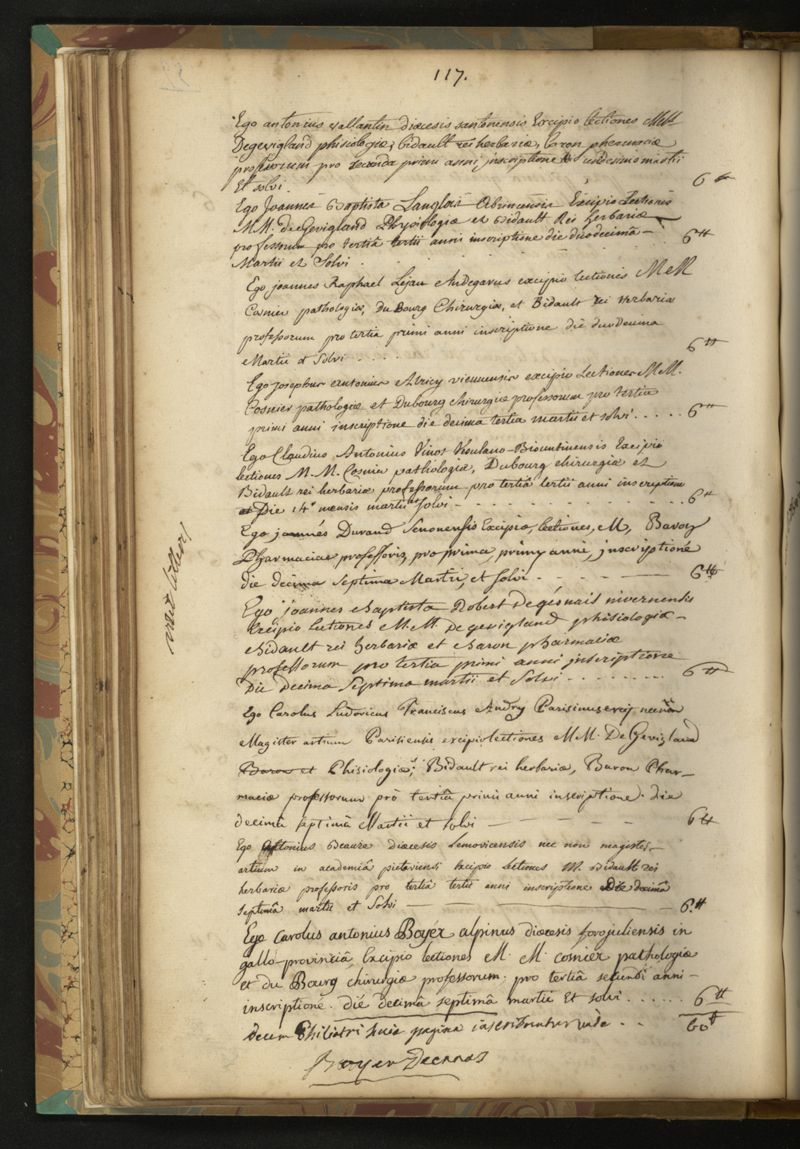 117.
Ego antonius vallantin diœcesis santonensis Excipio lectiones MM
Degevigland phisiologiæ, bidault rei herbariæ, baron pharmaciæ
professorum pro secunda primi anni inscriptione die undecimo martii
Et solvi. 6 ₶
Ego Joannes Baptista Langlois Abrincensis Excipio Lectiones
M.M. de Gevigland Physiologiæ et Bidault Rei herbariæ
professorum pro tertiâ tertii anni inscriptione die duodecimâ
Martii et Solvi . . . 6 ₶
Ego joannes Raphael Lejau Andegavus excipio lectiones MM
Cosnier pathologiæ, Du Bourg Chirurgiæ, et Bidault rei herbariæ
professorum pro tertia primi anni inscriptione die duodecima
Martii et Solvi . . . . 6 ₶
Ego josephus antonius Alricy viennensis excipio Lectiones M M.
Cosnier pathologiæ et Dubourg chirurgiæ professorum pro tertia
primi anni inscriptione die decima tertia martii et solvi . . . . . 6 ₶
Ego Claudius Antonius Vinot Bisuntinensis Excipio
lectiones M. M. Cosnier pathologiæ, Dubourg chirurgiæ et
Bidault rei herbariæ professorum pro tertiâ tertii anni inscriptione
Die 14ª mensis martii et solvi . . . . . 6 ₶
Ego joannes Durand Senonensis Excipio, lectiones, M, Baron
Pharmaciæ professoris, pro prima, primy anni, jnscriptione
die decima septima Martii, et solvi . . — 6 ₶
Ego joannes Baptista Robert Degésnais nivernensis
Excipio lectiones M.M. de gevigland phisiologiæ
Bidault rei herbariæ et Baron pharmaciæ
professorum pro tertia primi anni jnscriptione
Die decima Septima martii et Solvi . . . . . . . 6 ₶
Ego Carolus Ludovicus Franciscus Andry Parisinus nec non
Magister artium Parisiensis excipio lectiones M.M. De Gevigland
Baron et Phisiologiæ, Bidault rei herbariæ, Baron Phar-
maciæ professorum pro tertiâ primi anni inscriptione. die
decimâ septimâ Martii et solvi — — — — 6 ₶
Ego Antonius Beauze diæcesis Lemovicensis nec non magister
artium in academiâ pictaviensi Excipio lectiones M. Bidault rei
herbariæ professoris pro tertiâ tertii anni inscriptione Die decimâ
septimâ martii et Solvi — — — 6 ₶
Ego Carolus antonius Boyer alpinus diœcesis forojuliensis in
gallo-provinciâ, Excipio lectiones M. M. cosnier pathologiæ
et du Bourg chirurgiæ professorum. pro tertiâ secundi anni
inscriptione. die decimâ septimâ martii Et solvi . . . . . . 6 ₶
decem Philiatri huic paginæ inscribuntur unde . . 60 ₶
Boyer Decanus